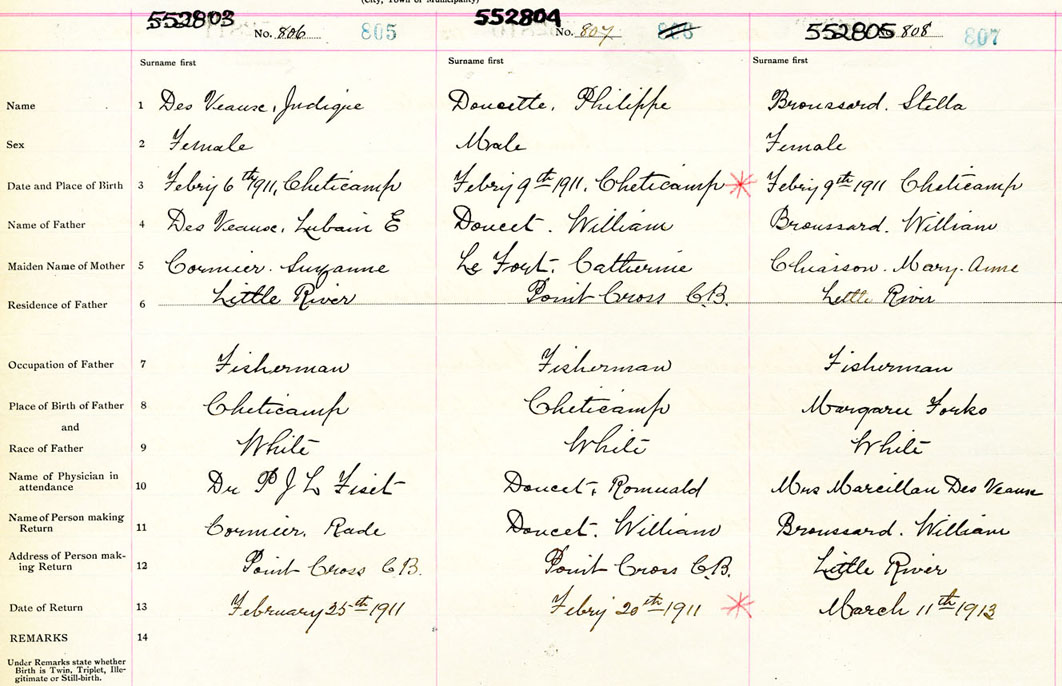 (City, Town or Municipality)
552803 552804 552805
No. 806 805 No. 807 808 807
Surname first Surname first Surname first
Name 1 Des Veaux, Judique Doucette, Philippe Broussard. Stella
Sex 2 Female Male Female
Date and Place of Birth 3 Febry 6th 1911, Cheticamp Febry 9th 1911. Cheticamp Febry 9th 1911 Cheticamp
Name of Father 4 Des Veaux, Lubain E Doucet. William Broussard. William
Maiden Name of Mother 5 Cormier. Suzanne Le Fort. Catherine Chiasson. Mary. Anne
Residence of Father 6 Little River Point Cross C.B. Little River
Occupation of Father 7 Fisherman Fisherman Fisherman
Place of Birth of Father 8 Cheticamp Cheticamp Margaree Forks
and
Race of Father 9 White White White
Name of Physician in
attendance 10 Dr P J L Fiset Doucet, Romuald Mrs Marcillan Des Veaux
Name of Person making
Return 11 Cormier. Rade Doucet. William Broussard. William
Address of Person mak-
ing Return 12 Point Cross C.B. Point Cross C.B. Little River
Date of Return 13 February 25th 1911 Febry 20th 1911 March 11th 1913
REMARKS 14
Under Remarks state whether
Birth is Twin, Triplet, Ille-
gitimate or Still-birth.